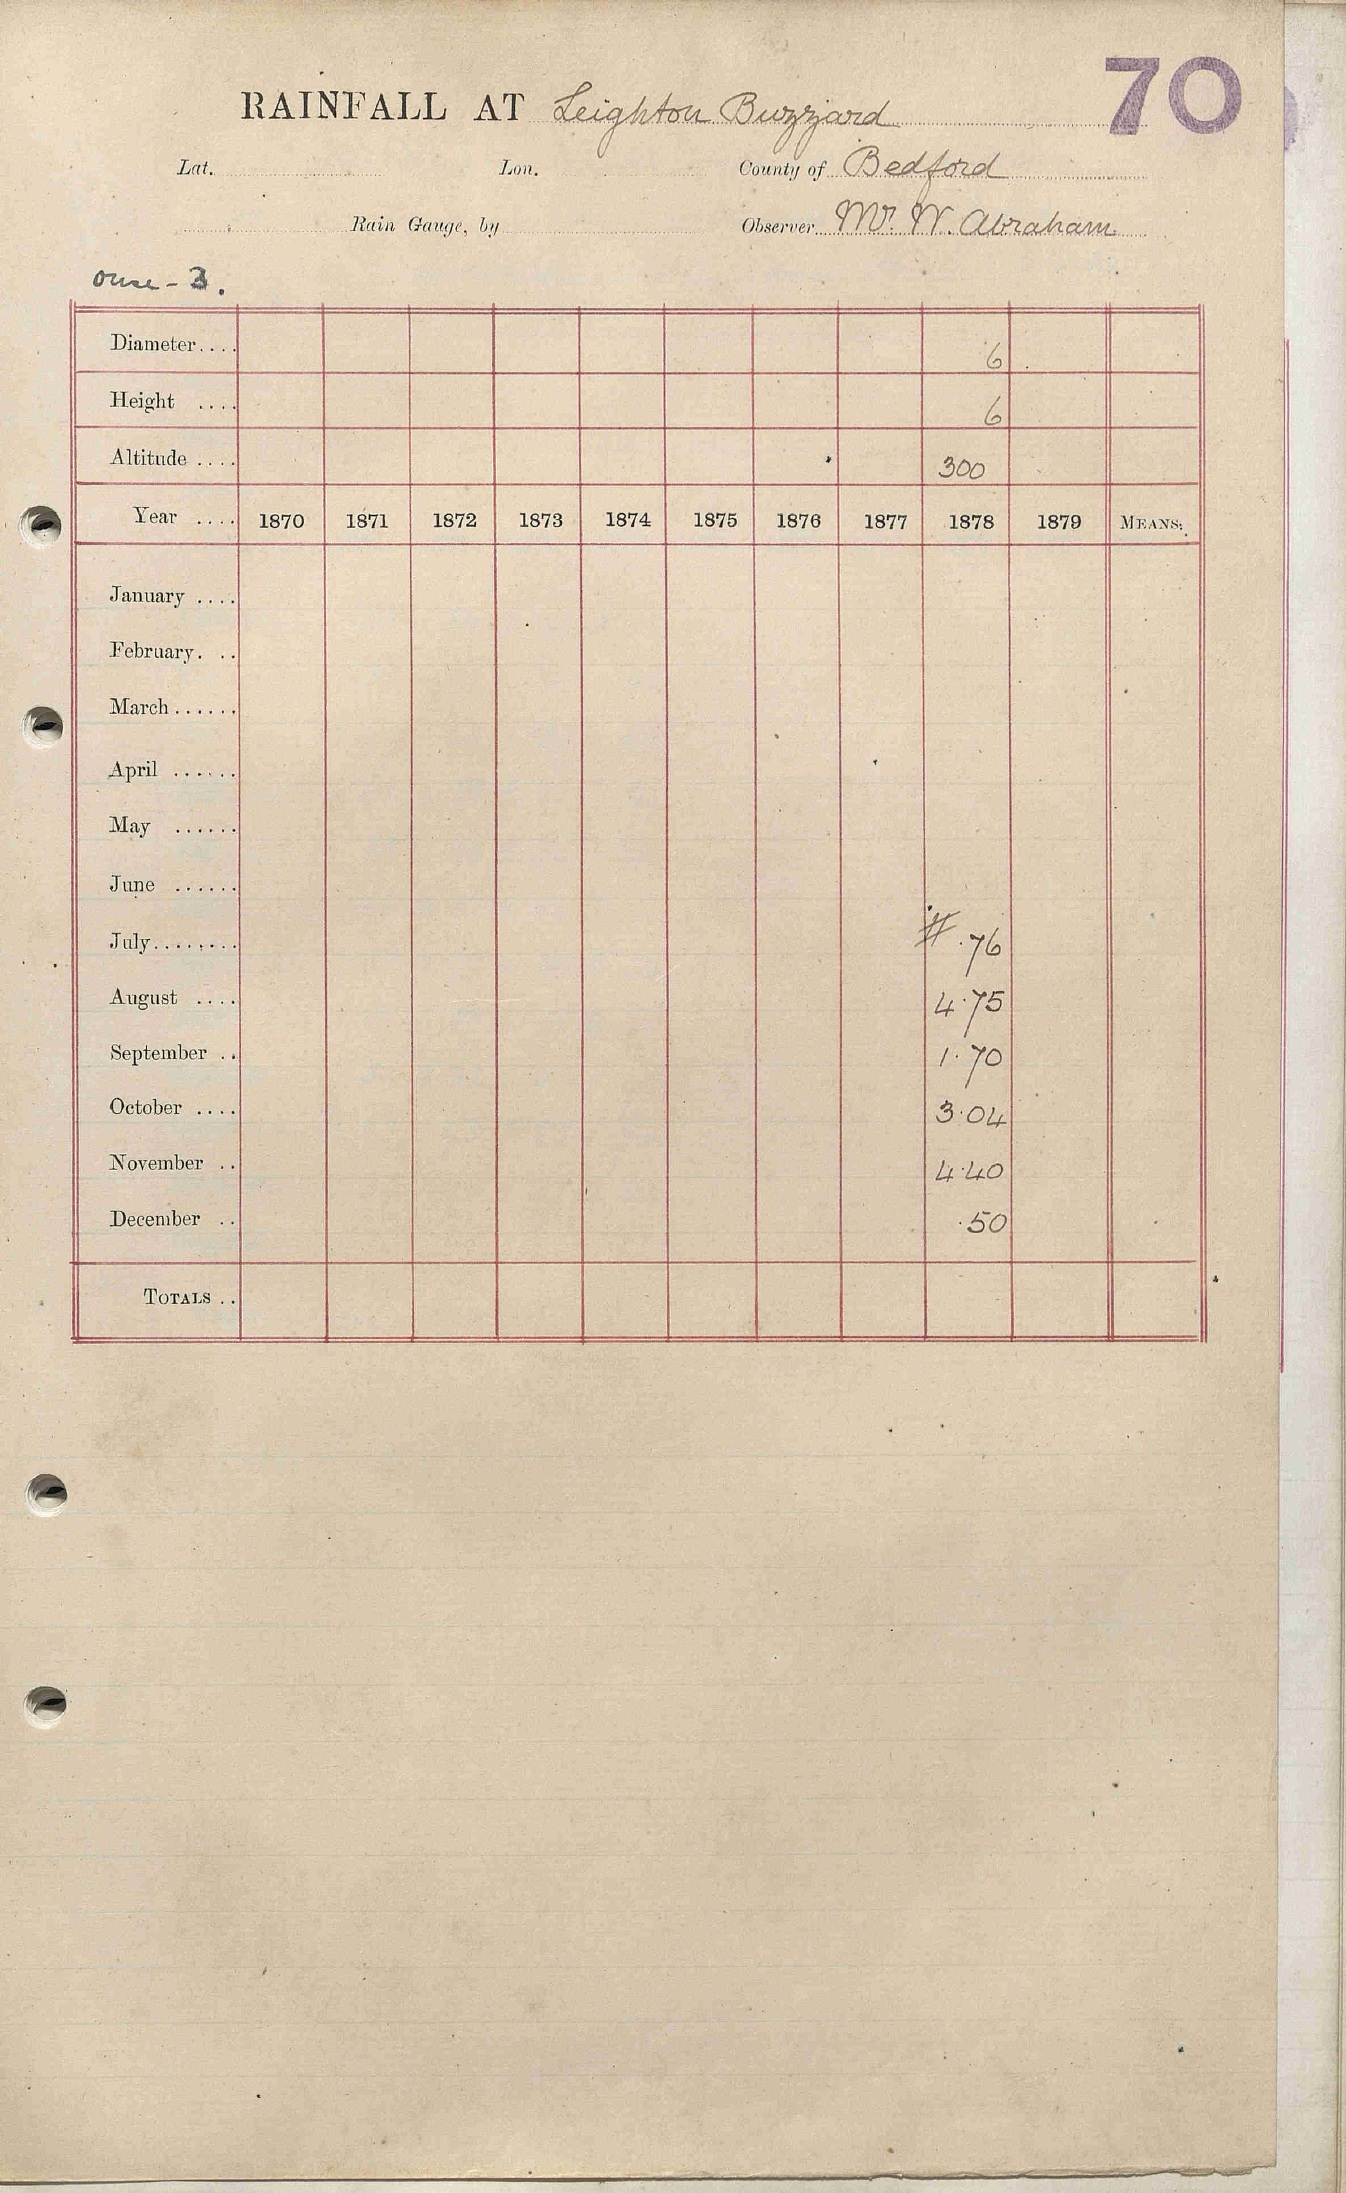 70
RAINFALL AT Leighton Buzzard
Lat. Lon. County of Bedford
Rain Gauge, by Observer Mr. W. Abraham
Ouse - 3.
Diameter.... 6
Height .... 6
Altitude .... 300
Year .... 1870 1871 1872 1873 1874 1875 1876 1877 1878 1879 MEANS.
January ....
February. ..
March ......
April ......
May ......
June ......
July........ # .76
August .... 4.75
September .. 1.70
October .... 3.04
November .. 4.40
December .. .50
TOTALS ..